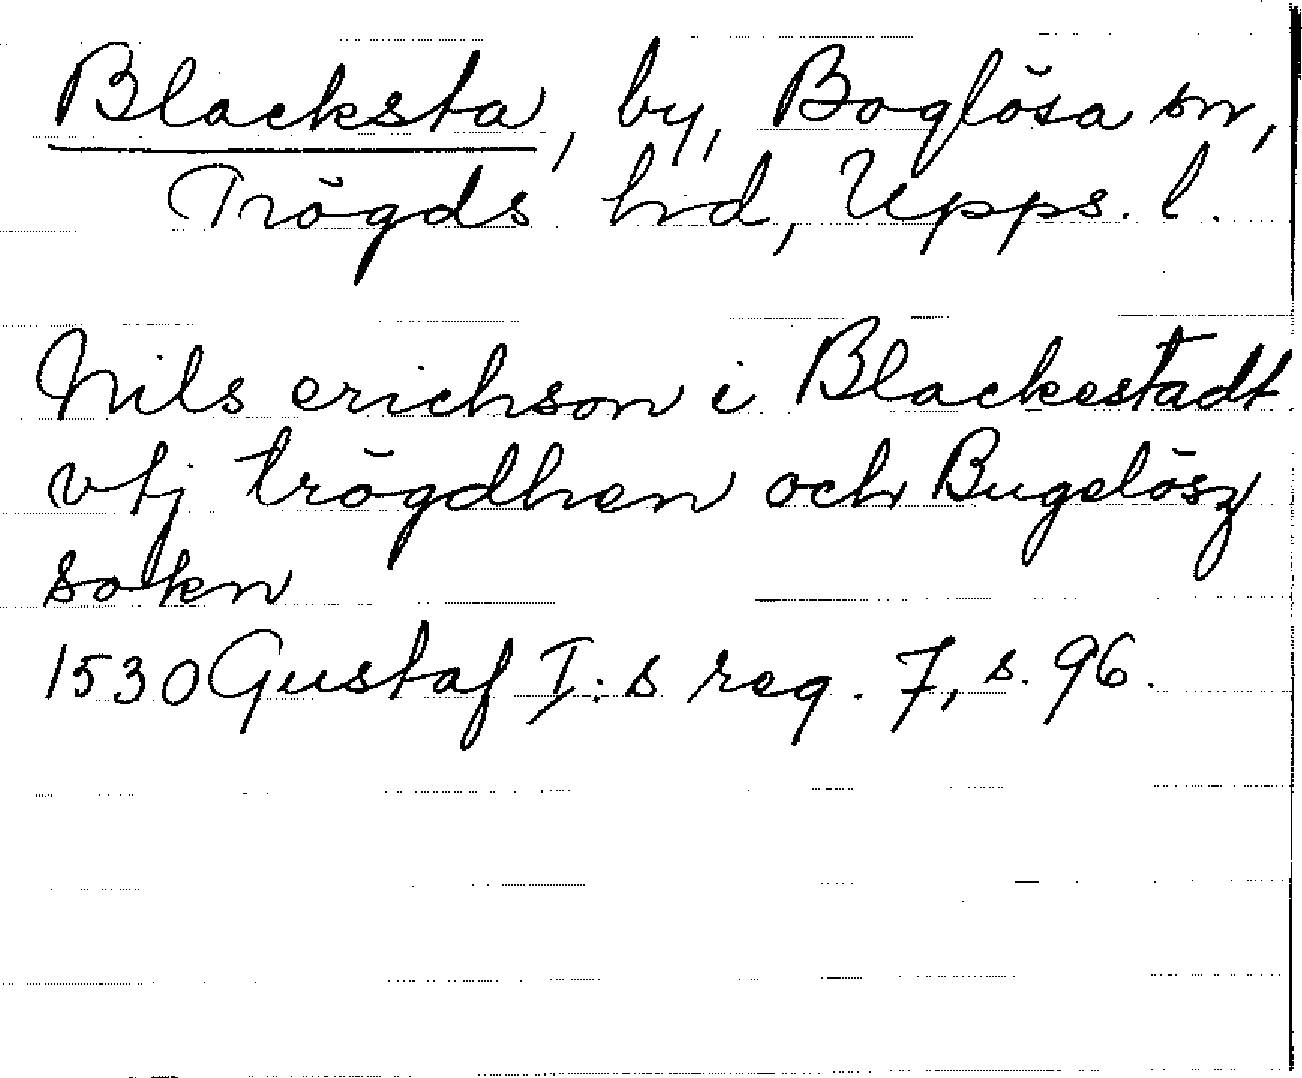 Blacksta, by, Boglösa sn,
Trögds hd, Upps. l.
Nils erichson i Blackestadt
vtj trögdhen och Bugelösz
sokn
1530 Gustaf I:s reg. 7, s. 96.